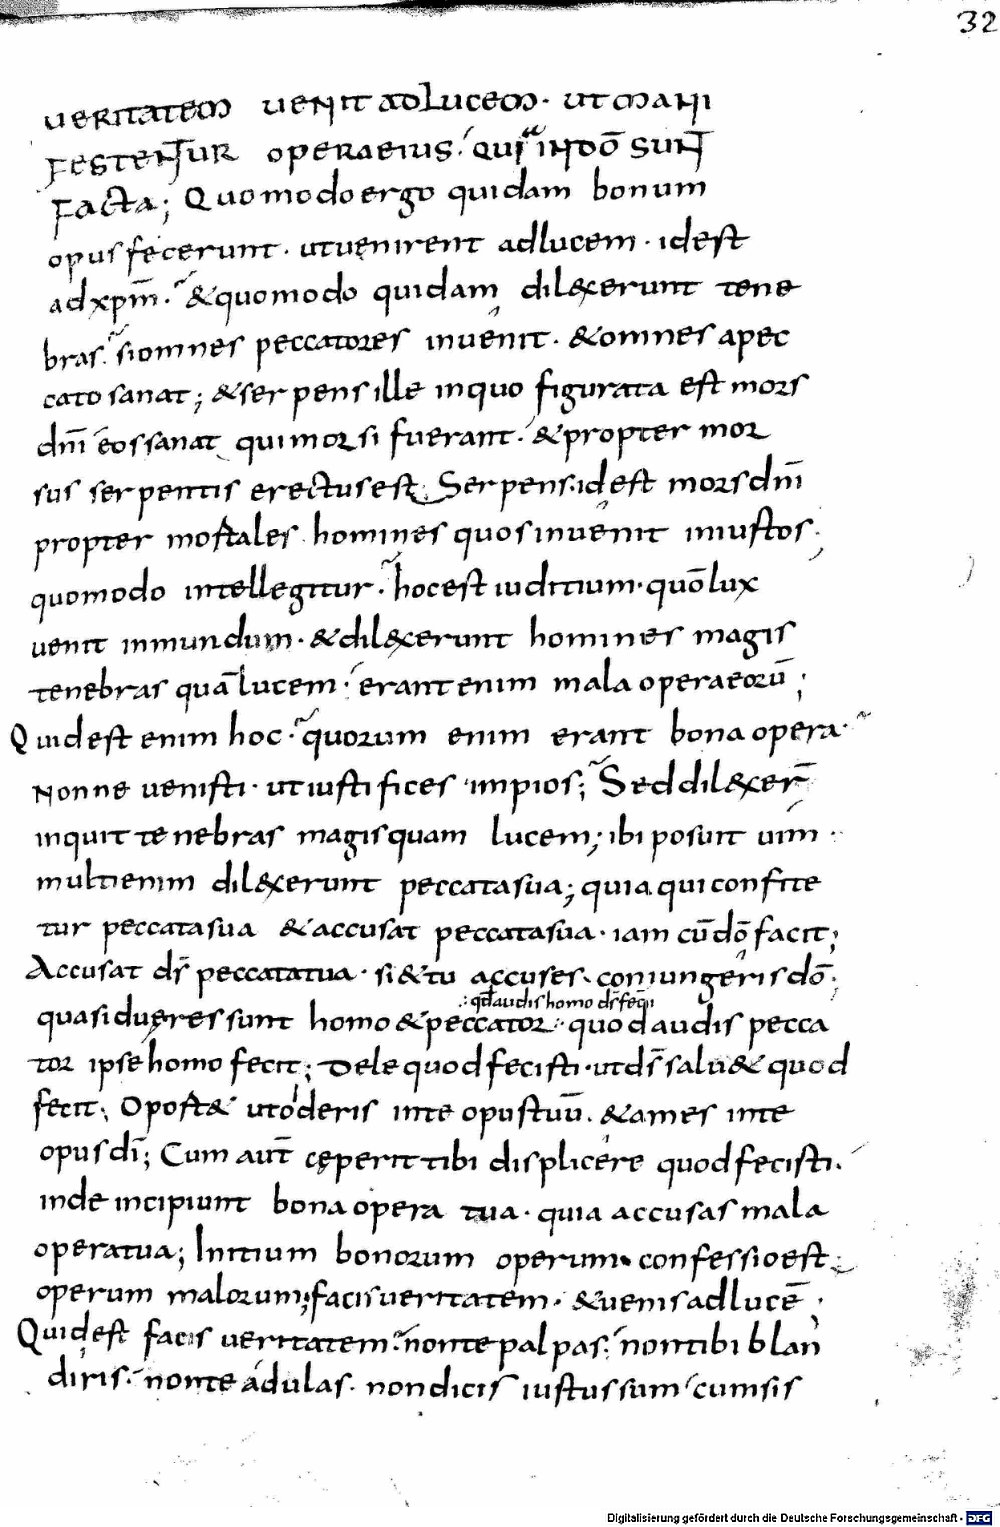 32
ueritatem uenit adlucem · ut mani
festentur opera eius · quia in dō sunt
facta; Quomodo ergo quidam bonum
opus fecerunt · ut uenirent ad lucem · idest
ad xpm̄ · & quomodo quidam dil&xerunt tene
bras · si omnes peccatores inuenit · & omnes apec
cato sanat; & serpens ille inquo figurata est mors
dn̄i eos sanat qui morsi fuerant · & propter mor
sus serpentis erectus est · Serpens · idest mors dn̄i
propter mortales homines quos inuenit iniustos ;
quomodo intellegitur · hoc est iuditium · quō lux
uenit inmundum · & dil&xerunt homines magis
tenebras quā lucem · erant enim mala opera eorū ;
Quid est enim hoc · quorum enim erant bona opera ·
Nonne uenisti · ut iustifices impios; Sed dil&xer̄
inquit tenebras magis quam lucem; ibi posuit uim ·
multi enim dil&xerunt peccata sua; quia qui confite
tur peccata sua & accusat peccata sua · iam cū dō facit;
Accusat ds̄ peccata tua · si & tu accuses · coniungeris dō ;
qd̄ audis homo ds̄ feq̄t
quasi duę res sunt homo & peccator · quod audis pecca
tor ipse homo fecit; Dele quod fecisti · ut ds̄ salu& quod
fecit; Oport& ut oderis inte opus tuū · & ames inte
opus dī; Cum aut̄ cęperit tibi displicere quod fecisti ·
inde incipiunt bona opera tua · quia accusas mala
opera tua; Initium bonorum operum · confessio est ;
operum malorum; facis ueritatem · & uenis ad lucē ;
Quid est facis ueritatem · non te palpas · non tibi blan
diris · non te adulas · non dicis iustus sum cum sis
Digitalisierung gefördert durch die Deutsche Forschungsgemeinschaft - DFG